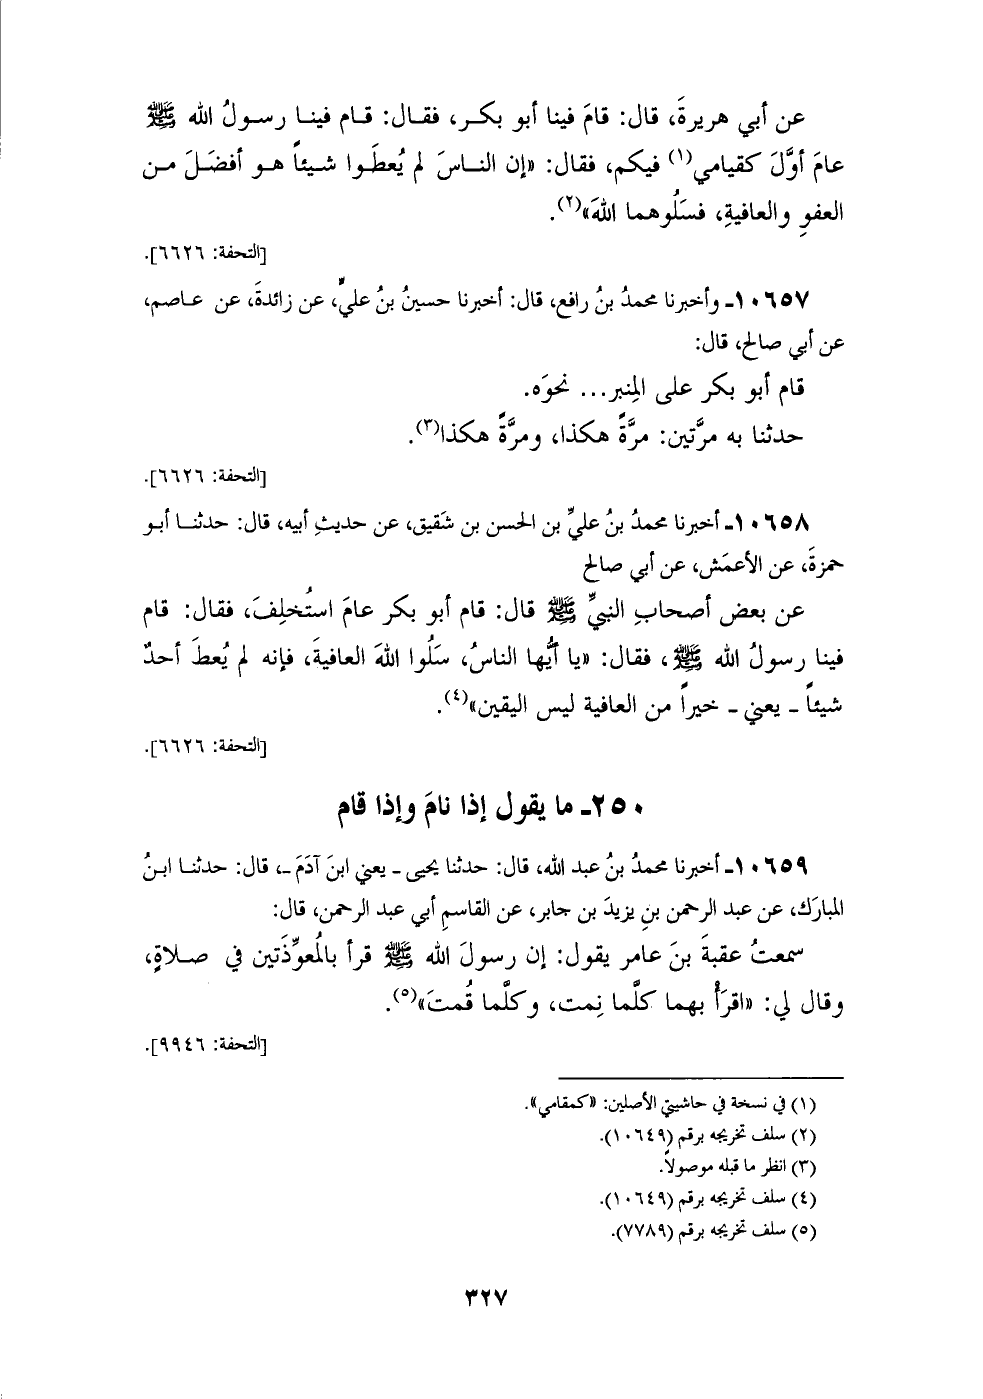 عن أبي هريرةَ، قال: قامَ فينا أبو بكـر، فقـال: قـام فينـا رسـولُ الله ﷺ
عامَ أوَّلَ كقيامي(١) فيكم، فقال: «إن النـاسَ لم يُعطَـوا شـيئاً هـو أفضَـلَ مـن
العفوِ والعافيةِ، فسَلُوهما اللهَ»(٢).
[التحفة: ٦٦٢٦].
١٠٦٥٧ـ وأخبرنا محمدُ بنُ رافع، قال: أخبرنا حسينُ بنُ عليٍّ، عن زائدةَ، عن عـاصم،
عن أبي صالح، قال:
قام أبو بكر على المِنبر... نحوَه.
حدثنا به مرَّتين: مرَّةً هكذا، ومرَّةً هكذا(٣).
[التحفة: ٦٦٢٦].
١٠٦٥٨ـ أخبرنا محمدُ بنُ عليِّ بن الحسن بن شَقيق، عن حديثِ أبيه، قال: حدثنـا أبـو
حمزةَ، عن الأعمَش، عن أبي صالح
عن بعض أصحابِ النبيِّ ﷺ قال: قام أبو بكر عامَ استُخلِفَ، فقال: قام
فينا رسولُ الله ﷺ، فقال: «يا أيُّها الناسُ، سَلُوا اللهَ العافيةَ، فإنه لم يُعطَ أحدٌ
شيئاً ـ يعني ـ خيراً من العافية ليس اليقين»(٤).
[التحفة: ٦٦٢٦].
٢٥٠ـ ما يقول إذا نامَ وإذا قام
١٠٦٥٩ـ أخبرنا محمدُ بنُ عبد الله، قال: حدثنا يحيى ـ يعني ابنَ آدَمَ ـ، قال: حدثنـا ابـنُ
المبارَك، عن عبد الرحمن بنِ يزيدَ بن جابر، عن القاسمِ أبي عبد الرحمن، قال:
سمعتُ عقبةَ بنَ عامر يقول: إن رسولَ الله ﷺ قرأ بالمُعوِّذَتين في صـلاةٍ،
وقال لي: «اقرَأْ بهما كلَّما نِمت، وكلَّما قُمتَ»(٥).
[التحفة: ٩٩٤٦].
(١) في نسخة في حاشيتي الأصلين: «كمقامي».
(٢) سلف تخريجه برقم (١٠٦٤٩).
(٣) انظر ما قبله موصولاً.
(٤) سلف تخريجه برقم (١٠٦٤٩).
(٥) سلف تخريجه برقم (٧٧٨٩).
٣٢٧